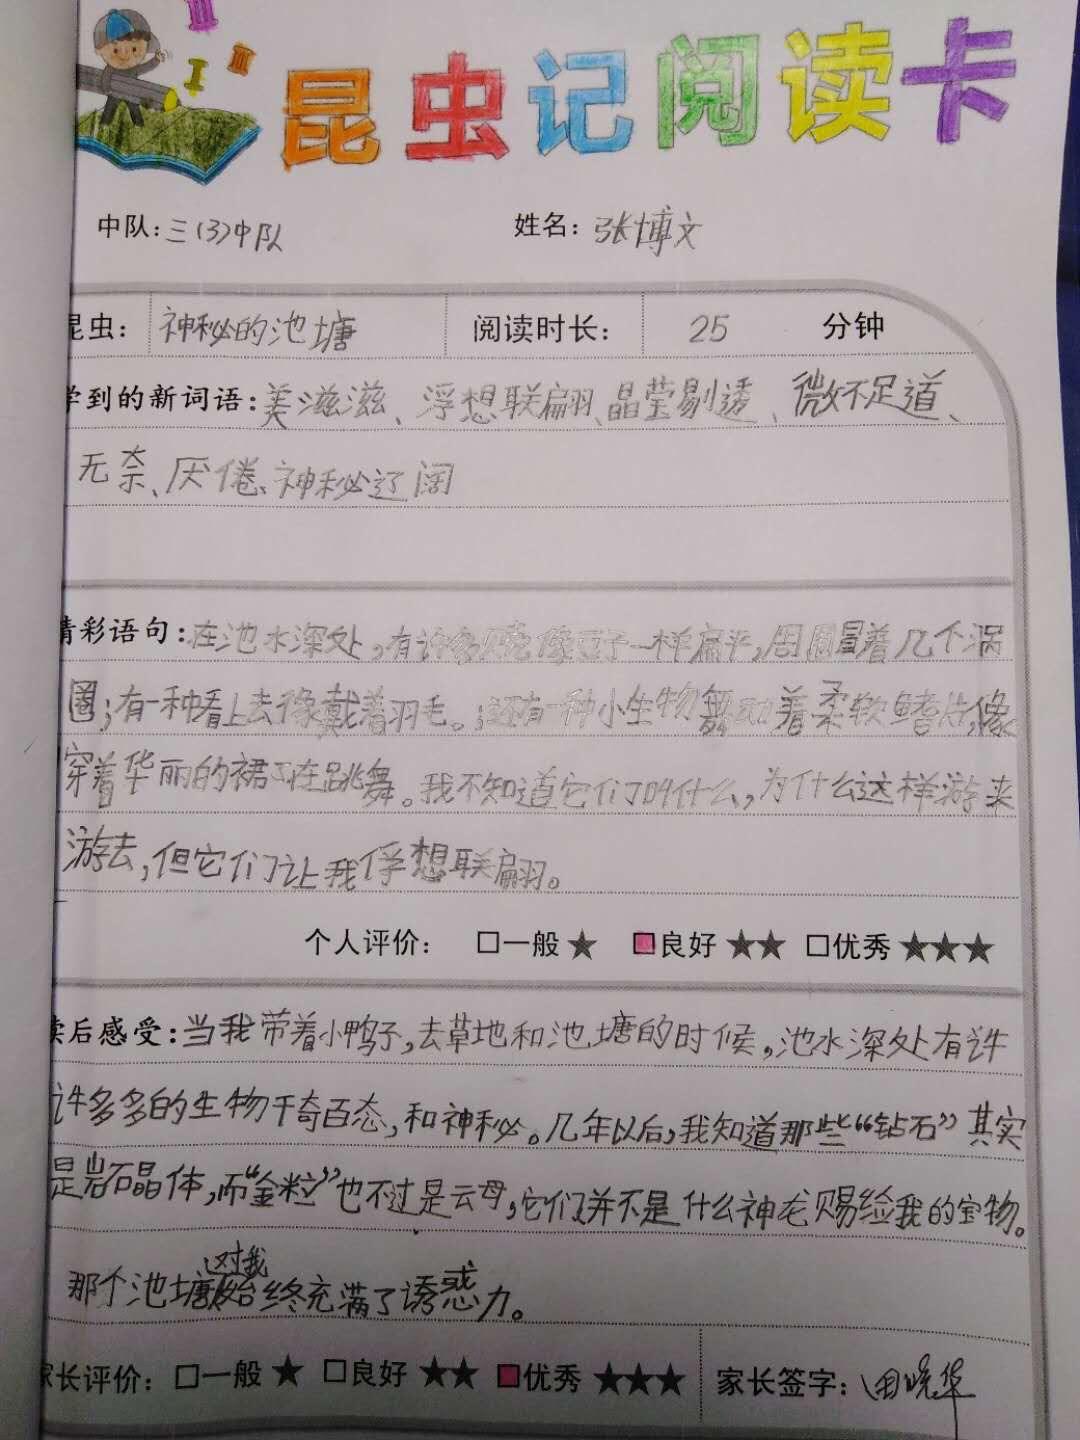 昆虫记阅读卡
中队：三(3)中队 姓名：张博文
昆虫： 神秘的池塘 阅读时长： 25 分钟
学到的新词语：美滋滋、浮想联翩、晶莹剔透、微不足道、
无奈、厌倦、神秘辽阔
精彩语句：在池水深处，有许多贝壳像豆子一样扁平，周围冒着几个涡
圈；有一种看上去像戴着羽毛。；还有一种小生物舞动着柔软鳍片，像
穿着华丽的裙子在跳舞。我不知道它们叫什么，为什么这样游来
游去，但它们让我俘想联翩。
个人评价： 一般★ 良好★★ 优秀★★★
读后感受：当我带着小鸭子，去草地和池塘的时候，池水深处有许
许多多的生物千奇百态，和神秘。几年以后，我知道那些“钻石”其实
是岩石晶体，而“金粒”也不过是云母，它们并不是什么神龙赐给我的宝物。
那个池塘这对我始终充满了诱惑力。
家长评价： 一般★ 良好★★ 优秀★★★ 家长签字：田晓华